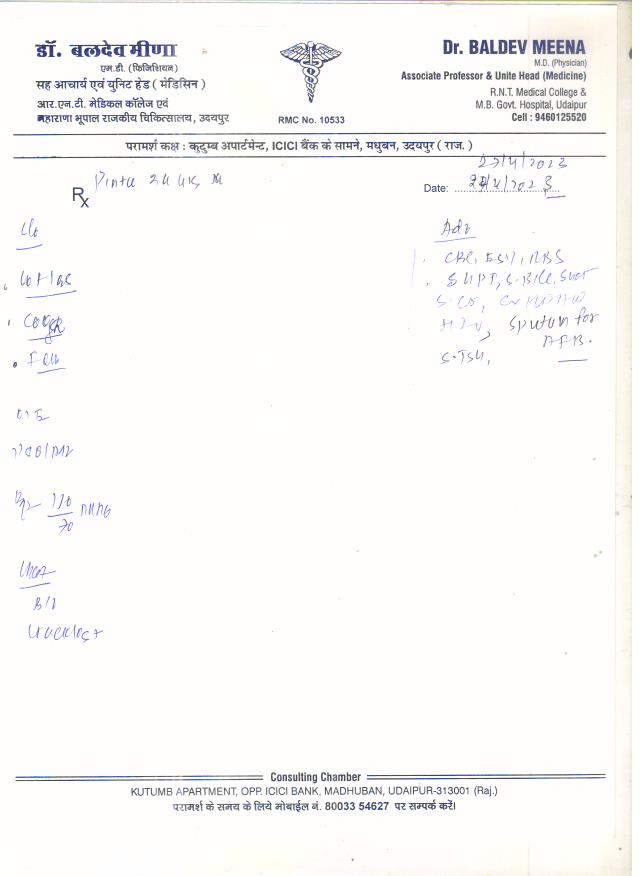 डॉ. बलदेव मीणा
एम.डी. (फिजिशियन)
सह आचार्य एवं यूनिट हेड ( मेडिसिन )
आर.एन.टी. मेडिकल कॉलेज एवं
महाराणा भूपाल राजकीय चिकित्सालय, उदयपुर
RMC No. 10533
Dr. BALDEV MEENA
M.D. (Physician)
Associate Professor & Unite Head (Medicine)
R.N.T. Medical College &
M.B. Govt. Hospital, Udaipur
Cell : 9460125520
परामर्श कक्ष : कुटुम्ब अपार्टमेन्ट, ICICI बैंक के सामने, मधुबन, उदयपुर ( राज. )
Rx
Date:
C/o
Cough
O/E
BP 110/70 MMHG
Chest
B/L
Adv
CBC, ESR, RBS
SGPT,
HIV, Sputum for
AFB.
S.TSH,
Consulting Chamber
KUTUMB APARTMENT, OPP. ICICI BANK, MADHUBAN, UDAIPUR-313001 (Raj.)
परामर्श के समय के लिये मोबाईल नं. 80033 54627 पर सम्पर्क करें।